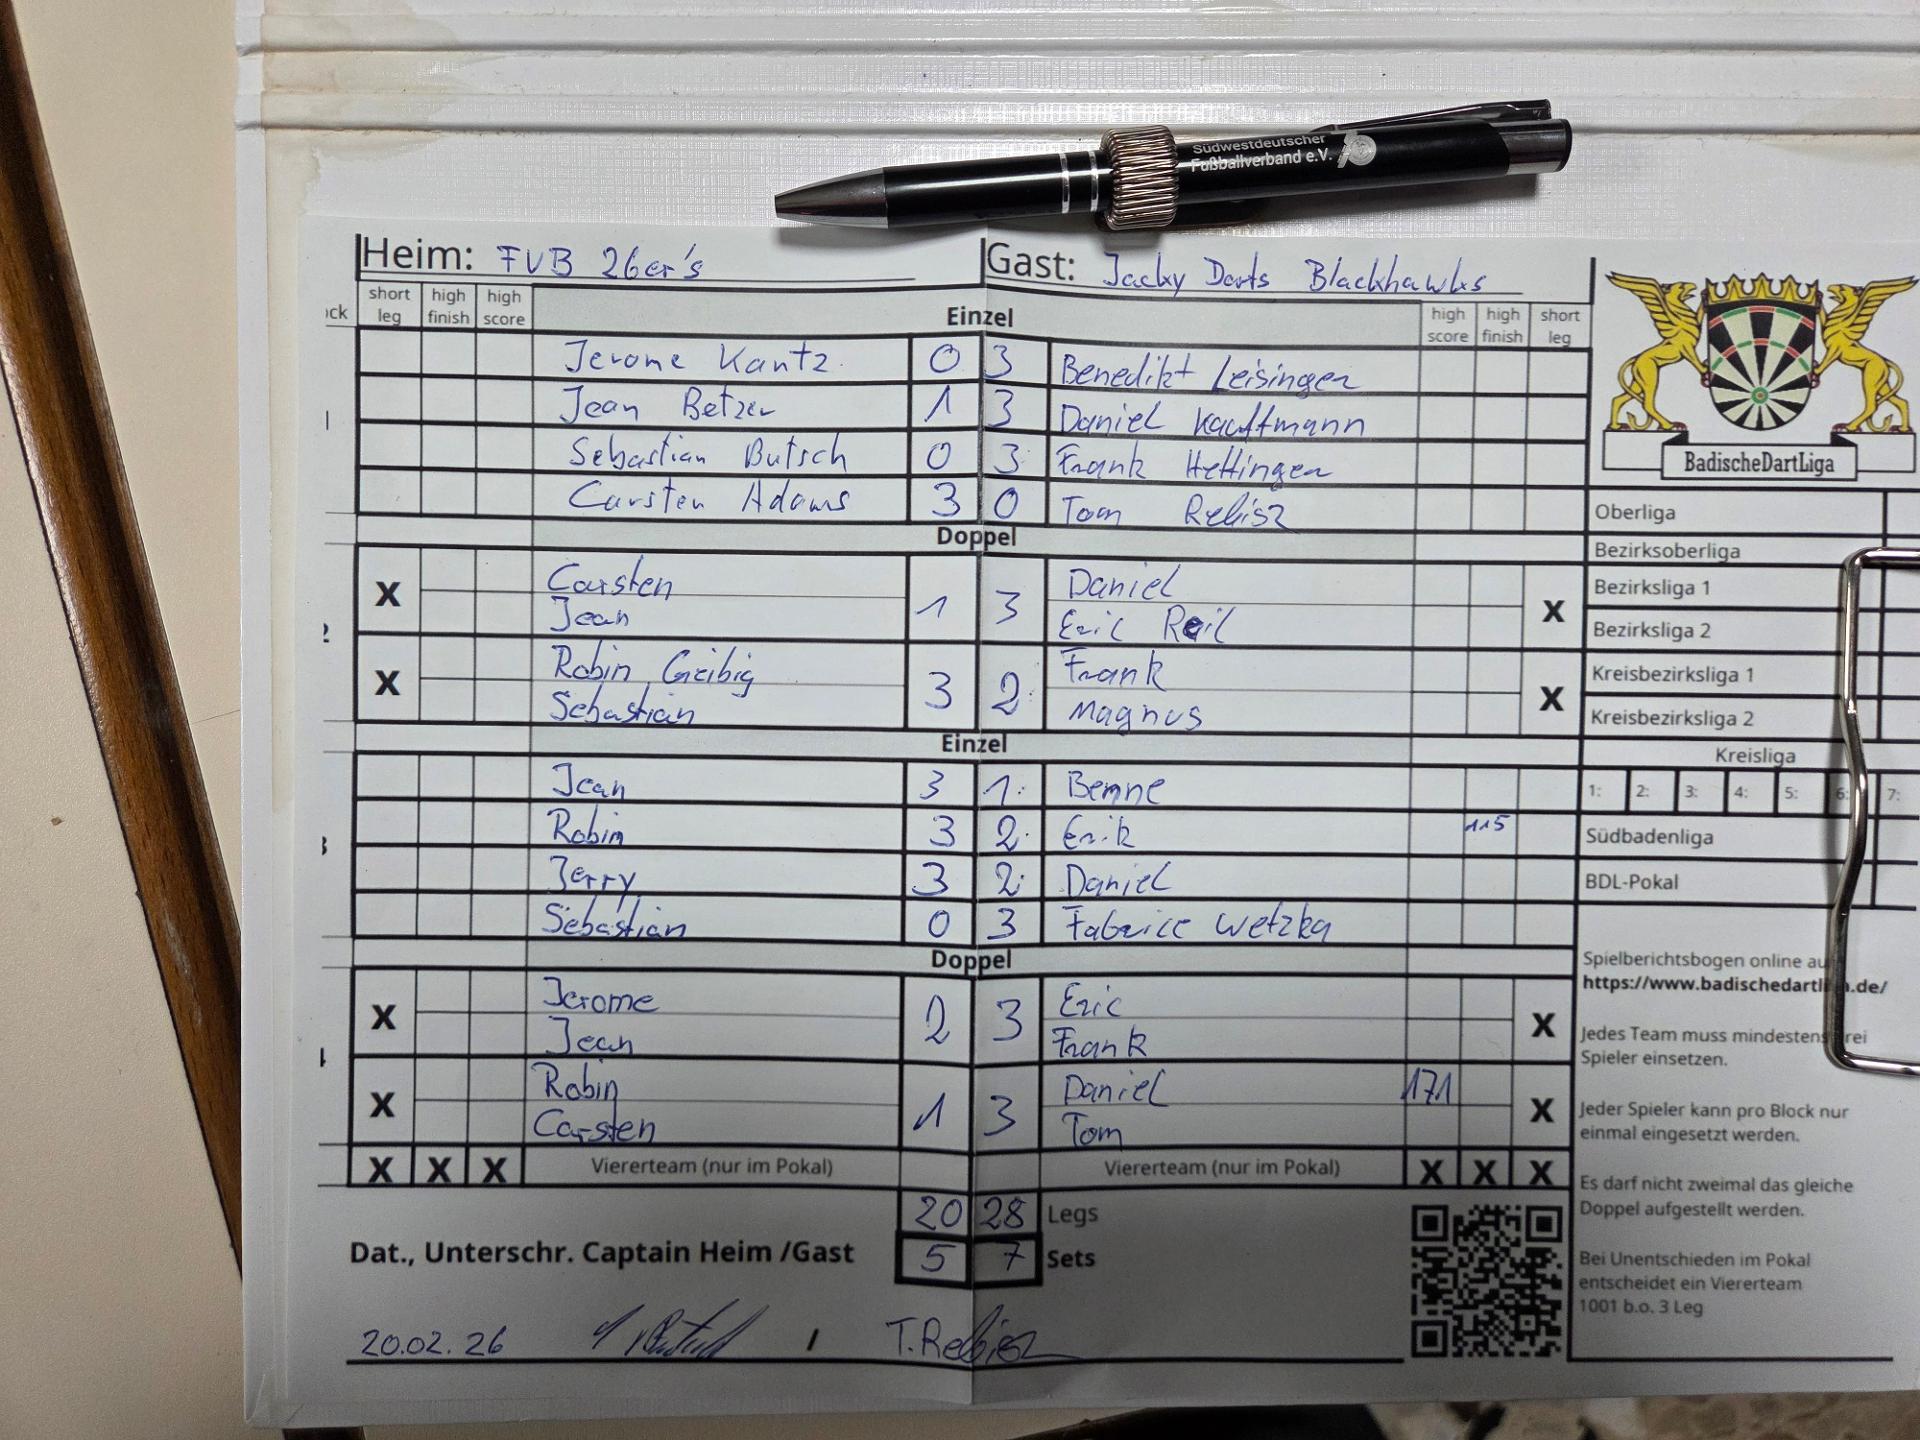 Südwestdeutscher
Fußballverband e.V.
Heim: FVB 26er's Gast: Jacky Darts Blackhawks
ock short leg high finish high score Einzel high score high finish short leg
Jerome Kantz 0 3 Benedikt Leisinger
1 Jean Betzer 1 3 Daniel Kauffmann
Sebastian Butsch 0 3 Frank Hettinger
Carsten Adams 3 0 Tom Rebisz
BadischeDartLiga
Oberliga
Doppel
Bezirksoberliga
X Carsten 1 3 Daniel X
Jean Eric Reil
Bezirksliga 1
Bezirksliga 2
2
X Robin Geibig 3 2 Frank X
Sebastian Magnus
Kreisbezirksliga 1
Kreisbezirksliga 2
Einzel
Kreisliga
1: 2: 3: 4: 5: 6: 7:
Jean 3 1 Benne
Robin 3 2 Erik 115
3 Jerry 3 2 Daniel
Sebastian 0 3 Fabrice Wetzka
Südbadenliga
BDL-Pokal
Doppel
X Jerome 2 3 Eric X
Jean Frank
X Robin 1 3 Daniel 171 X
Carsten Tom
X X X Viererteam (nur im Pokal) Viererteam (nur im Pokal) X X X
20 28 Legs
Dat., Unterschr. Captain Heim /Gast 5 7 Sets
20.02.26 / T.Rebisz
Spielberichtsbogen online au
https://www.badischedartli a.de/
Jedes Team muss mindestens rei
Spieler einsetzen.
Jeder Spieler kann pro Block nur
einmal eingesetzt werden.
Es darf nicht zweimal das gleiche
Doppel aufgestellt werden.
Bei Unentschieden im Pokal
entscheidet ein Viererteam
1001 b.o. 3 Leg